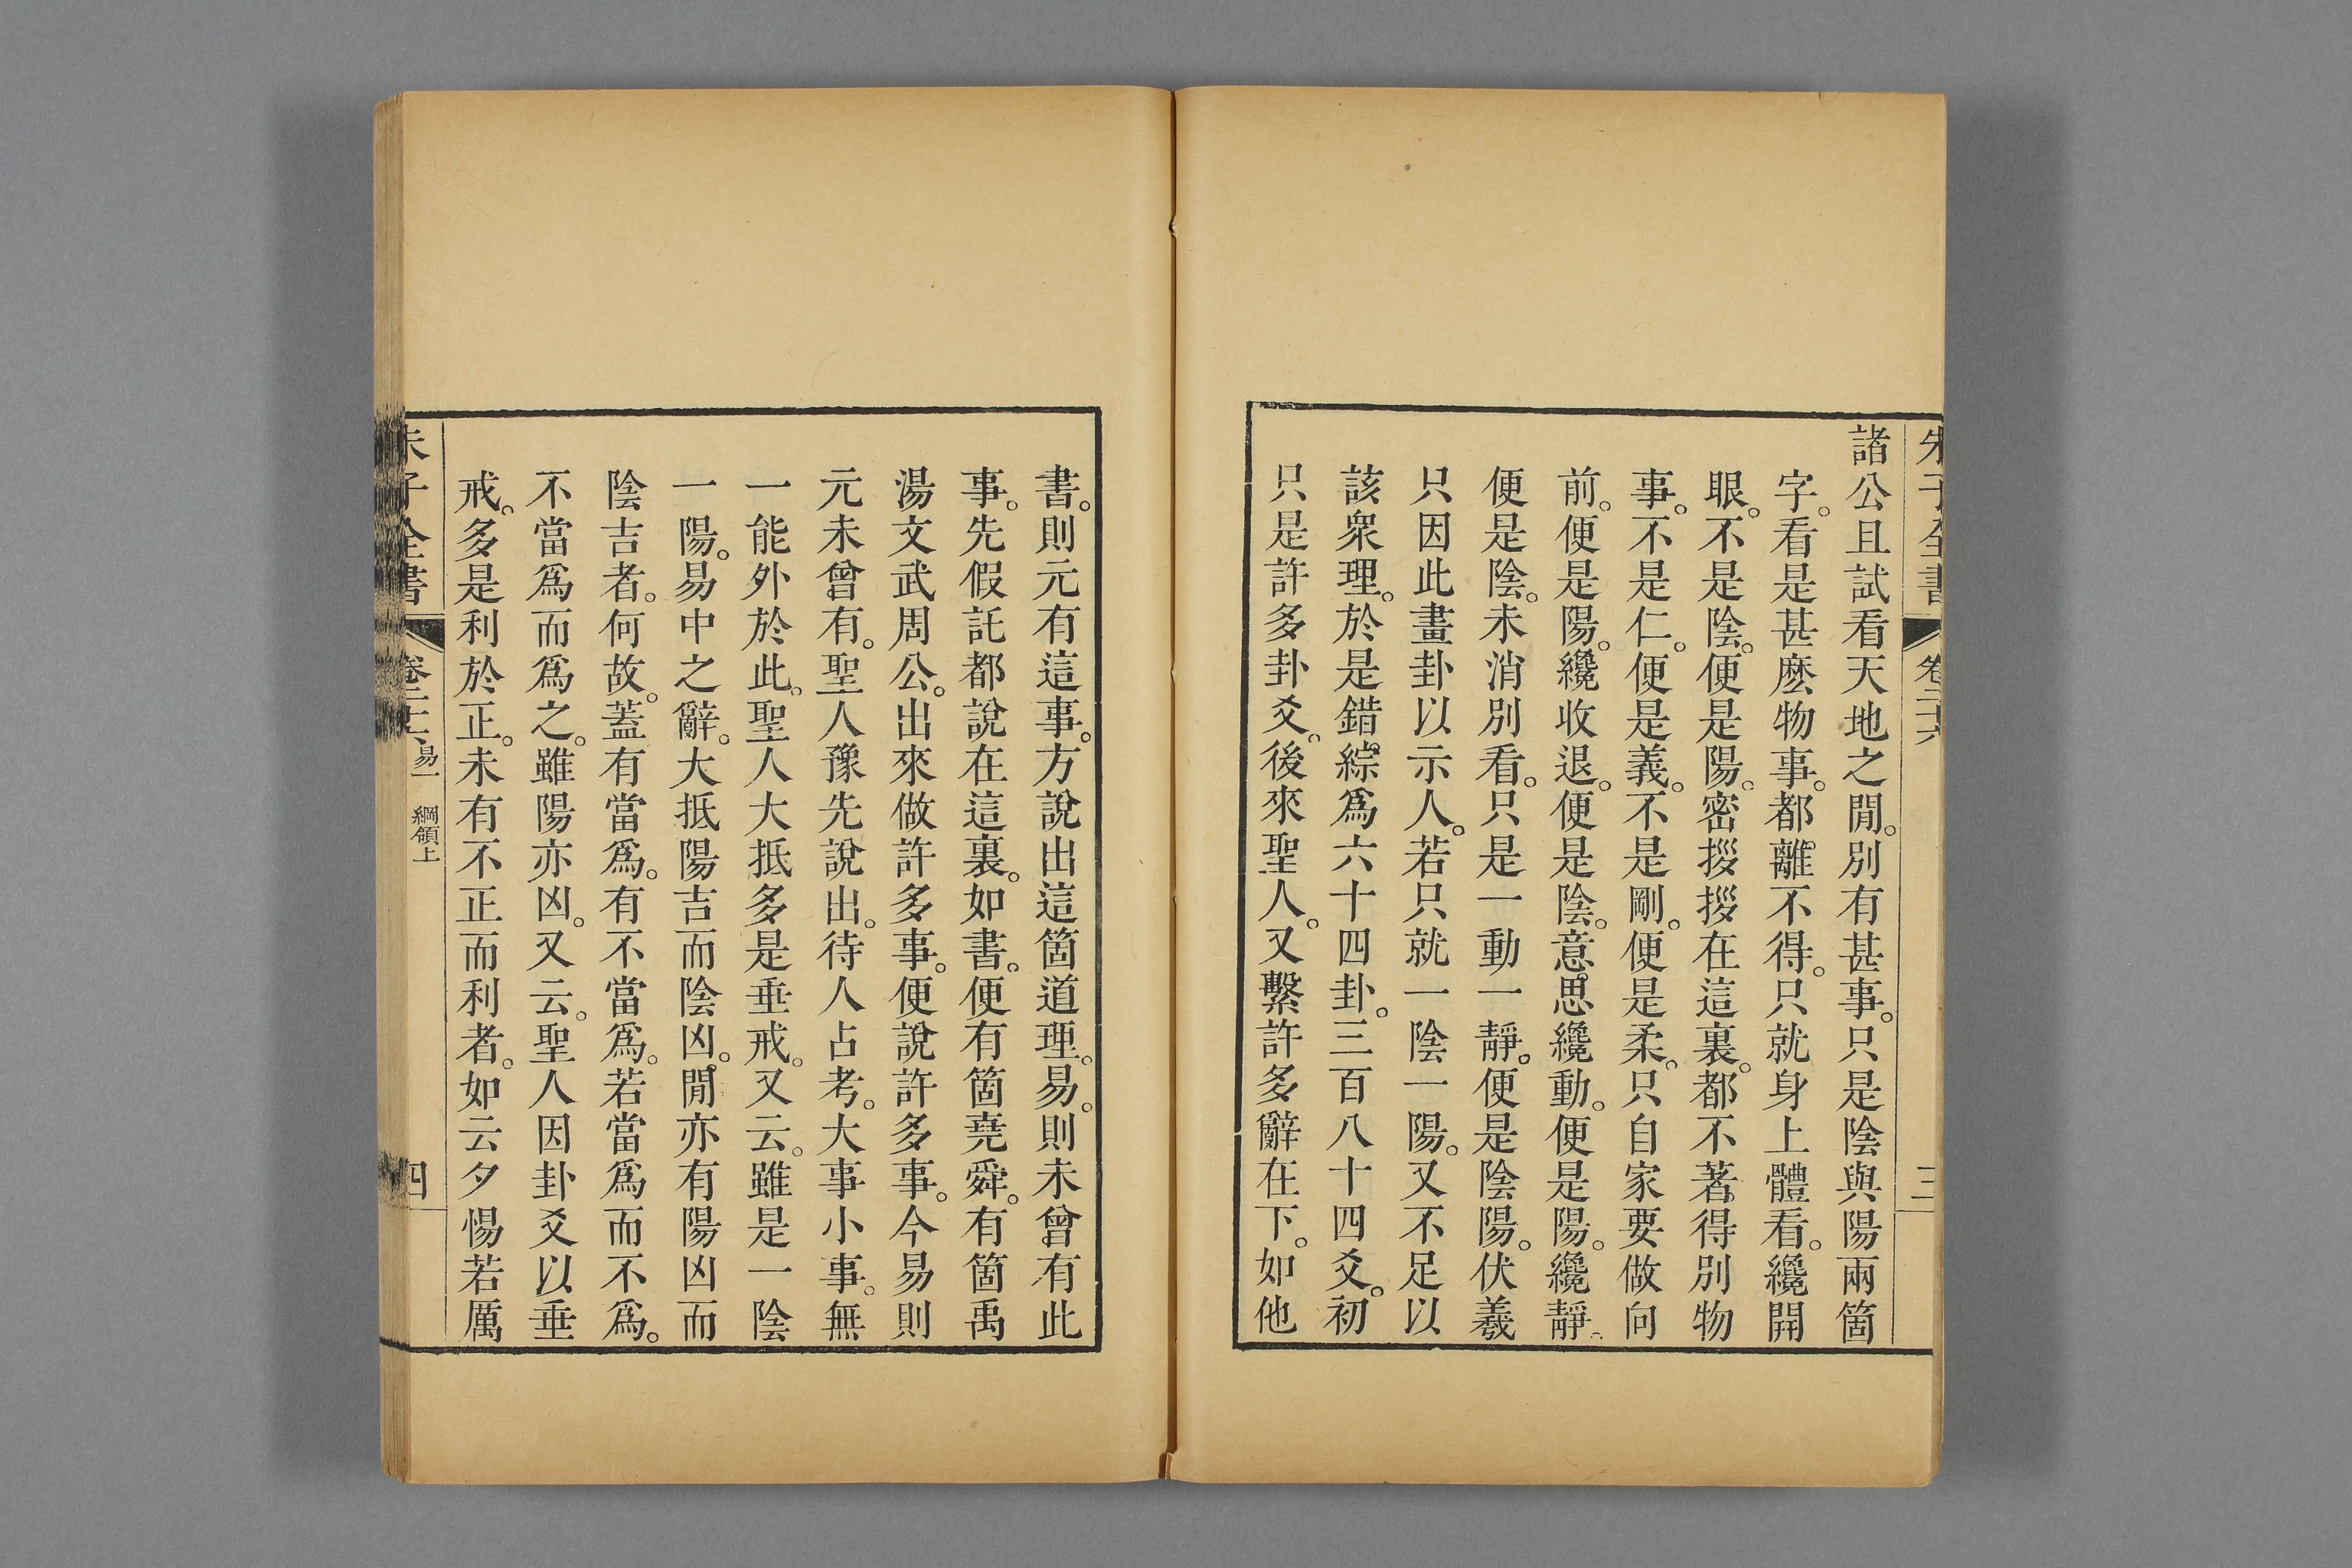 朱子全書 卷二十六 三
諸公且試看天地之閒。別有甚事。只是陰與陽兩箇
字。看是甚麽物事。都離不得。只就身上體看。纔開
眼。不是陰。便是陽。密拶拶在這裏。都不著得別物
事。不是仁。便是義。不是剛。便是柔。只自家要做向
前。便是陽。纔收退。便是陰。意思纔動。便是陽。纔靜。
便是陰。未消別看。只是一動一靜。便是陰陽。伏羲
只因此畫卦以示人。若只就一陰一陽。又不足以
該衆理。於是錯綜爲六十四卦。三百八十四爻。初
只是許多卦爻。後來聖人。又繫許多辭在下。如他
書。則元有這事。方說出這箇道理。易。則未曾有此
事。先假託都說在這裏。如書。便有箇堯舜。有箇禹
湯文武周公。出來做許多事。便說許多事。今易則
元未曾有。聖人豫先說出。待人占考。大事小事。無
一能外於此。聖人大抵多是垂戒。又云。雖是一陰
一陽。易中之辭。大抵陽吉而陰凶。閒亦有陽凶而
陰吉者。何故。蓋有當爲。有不當爲。若當爲而不爲。
不當爲而爲之。雖陽亦凶。又云。聖人因卦爻以垂
戒。多是利於正。未有不正而利者。如云夕惕若厲
朱子全書 卷二十六 易一 綱領上 四